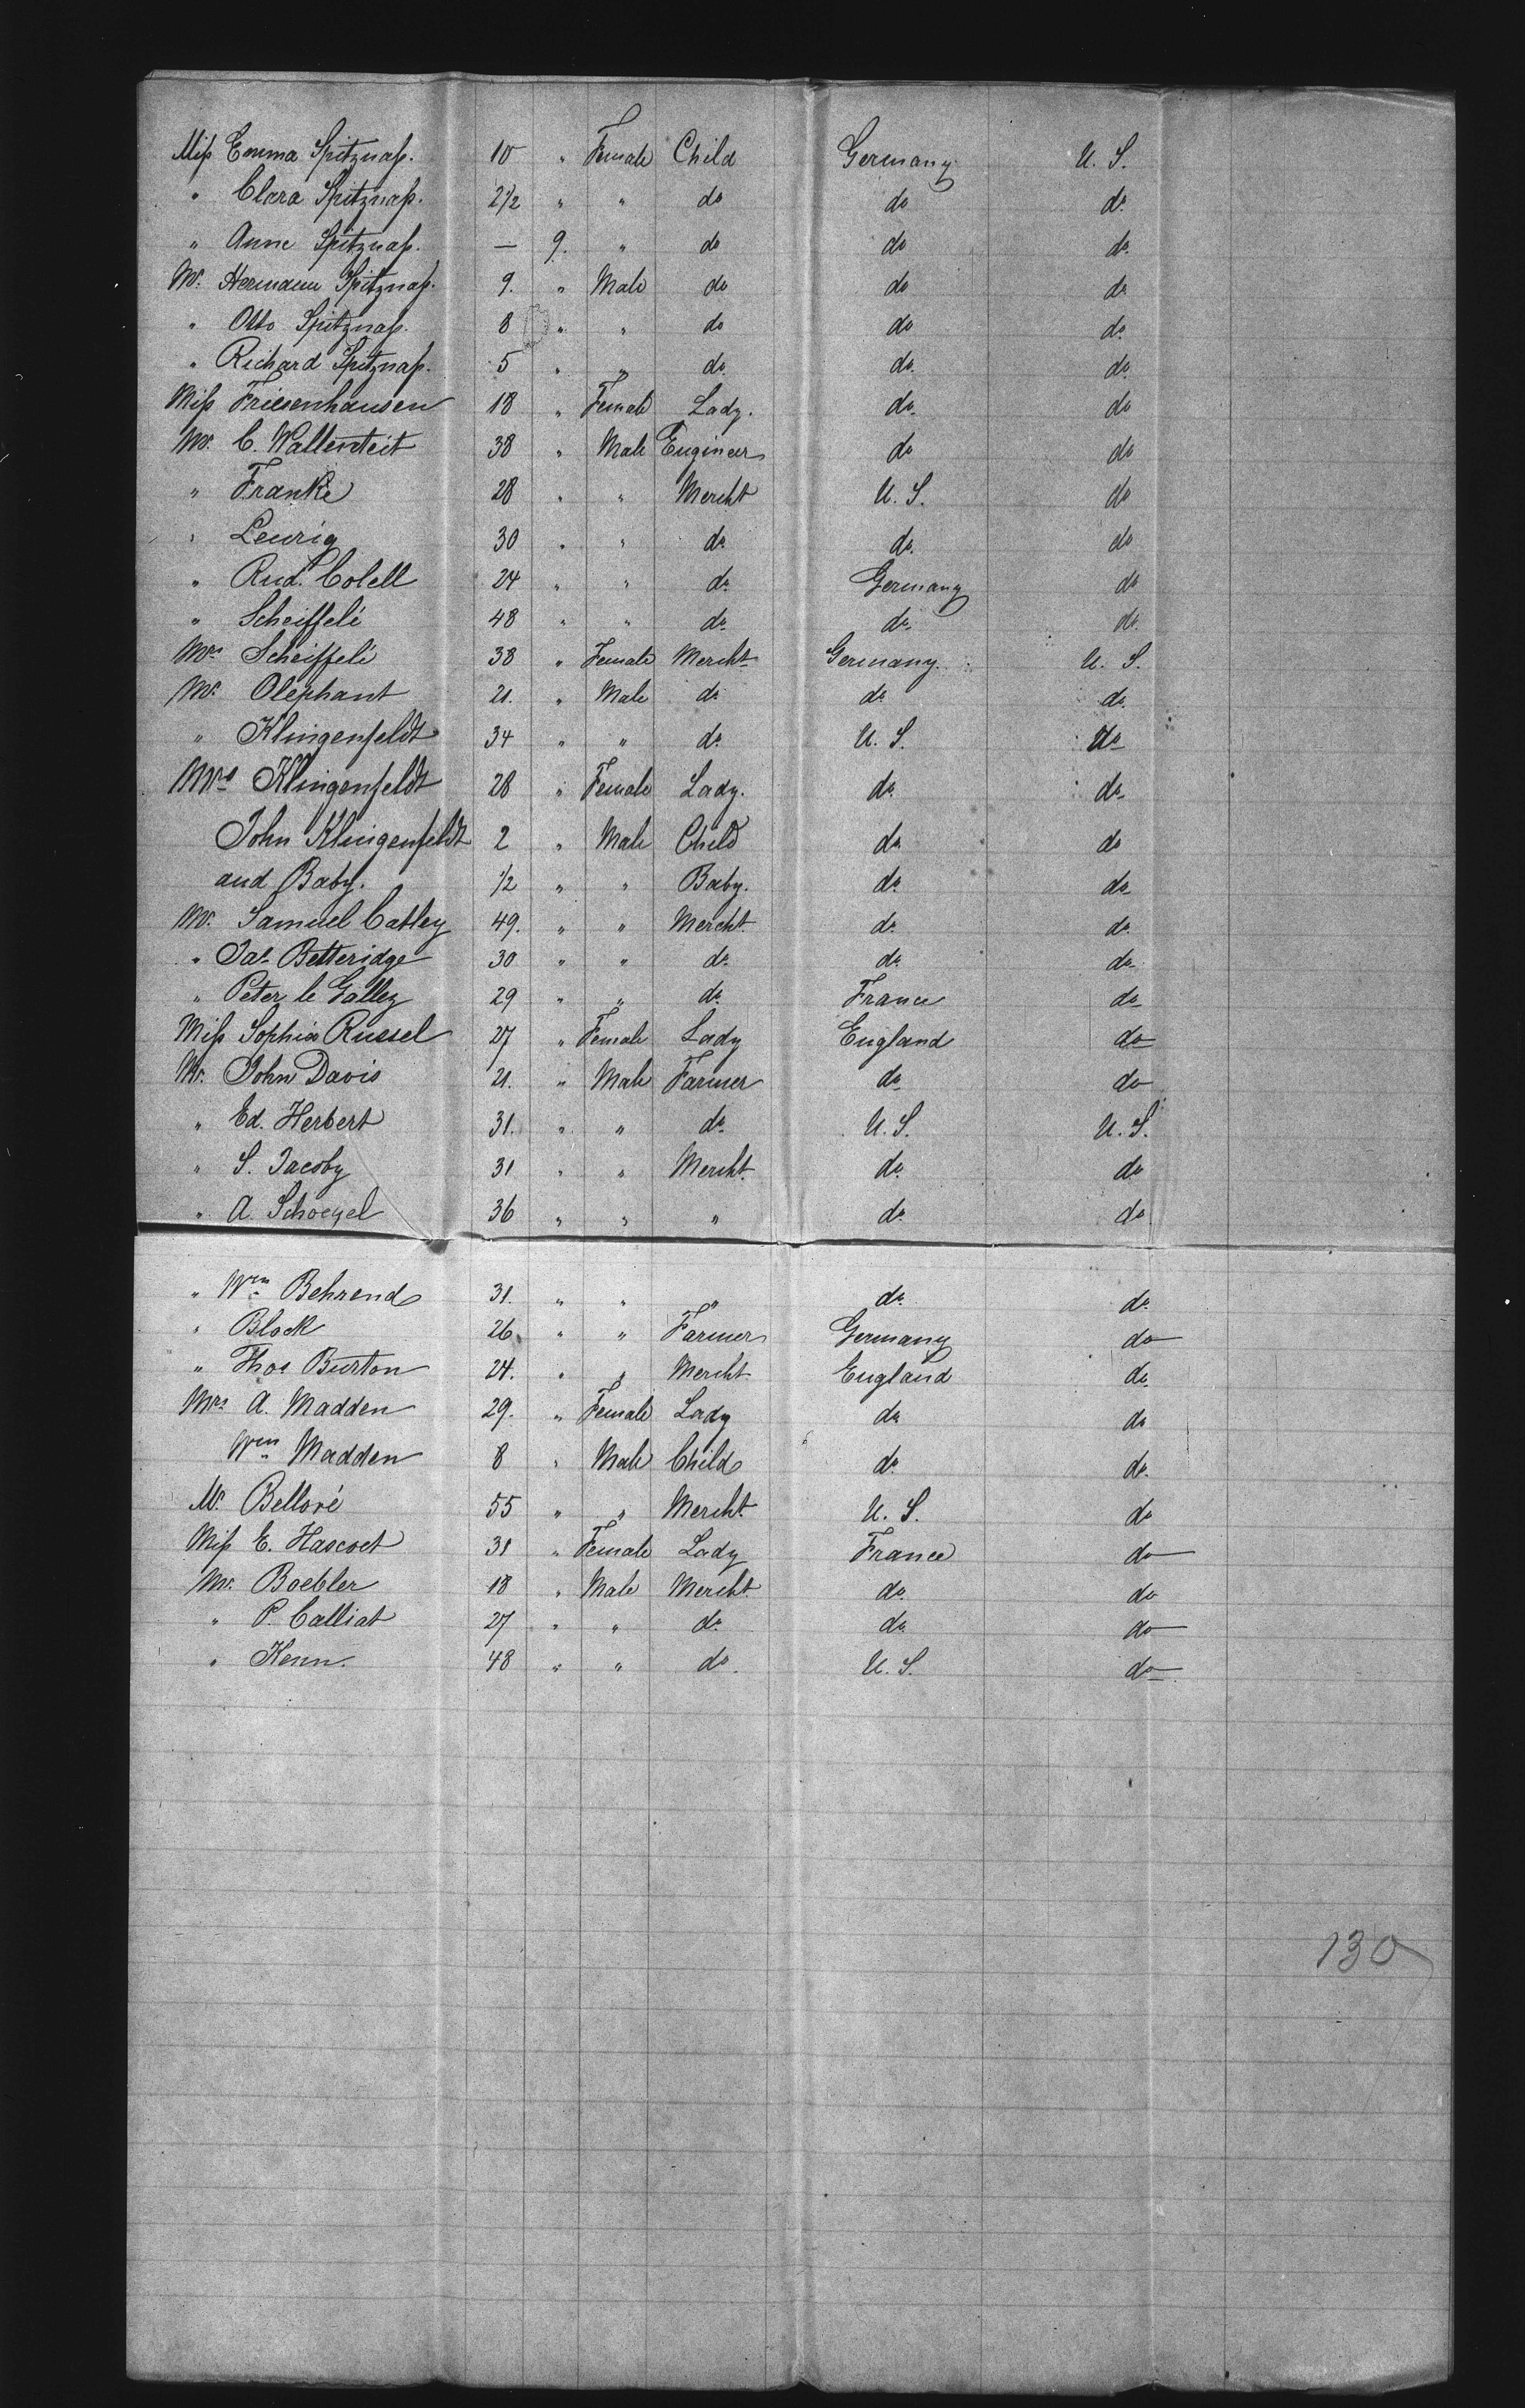 Miss Emma Spitznass. 10 " Female Child Germany U. S.
" Clara Spitznass. 2 1/2 " " do do do
" Anne Spitznass. — 9. " do do do
Mr. Hermann Spitznass. 9. " Male do do do
" Otto Spitznass. 8 " " do do do
" Richard Spitznass. 5 " " do do do
Miss Friesenhausen 18 " Female Lady. do do
Mr. C. Wallenteit 38 " Male Engineer do do
" Franke 28 " " Mercht U. S. do
" Leurig 30 " " do do do
" Rud. Colell 24 " " do Germany do
" Scheiffelé 48 " " do do do
Mrs Scheiffelé 38 " Female Mercht Germany. U. S.
Mr. Olephant 21. " Male do do do
" Klingenfeldt 34 " " do U. S. do
Mrs Klingenfeldt 28 " Female Lady. do do
John Klingenfeldt 2 " Male Child do do
and Baby. 1/2 " " Baby. do do
Mr. Samuel Catley 49. " " Mercht. do do
" Jas Betteridge 30 " " do do do
" Peter le Galley 29 " " do France do
Miss Sophia Russel 27 " Female Lady England do
Mr. John Davis 21. " Male Farmer do do
" Ed. Herbert 31. " " do U. S. U. S.
" S. Jacoby 31 " " Mercht. do do
" A. Schoezel 36 " " " do do
" Wm Behrend 31. " " " do do
" Block 26 " " Farmer Germany do
" Thos Burton 24. " " Mercht England do
Mrs A. Madden 29. " Female Lady do do
Wm Madden 8 " Male Child do do
Mr. Belloré 55 " " Mercht. U. S. do
Miss E. Hascoet 31 " Female Lady France do
Mr. Boebler 18 " Male Mercht. do do
" P. Calliat 27 " " do do do
" Kenn. 48 " " do. U. S. do
130